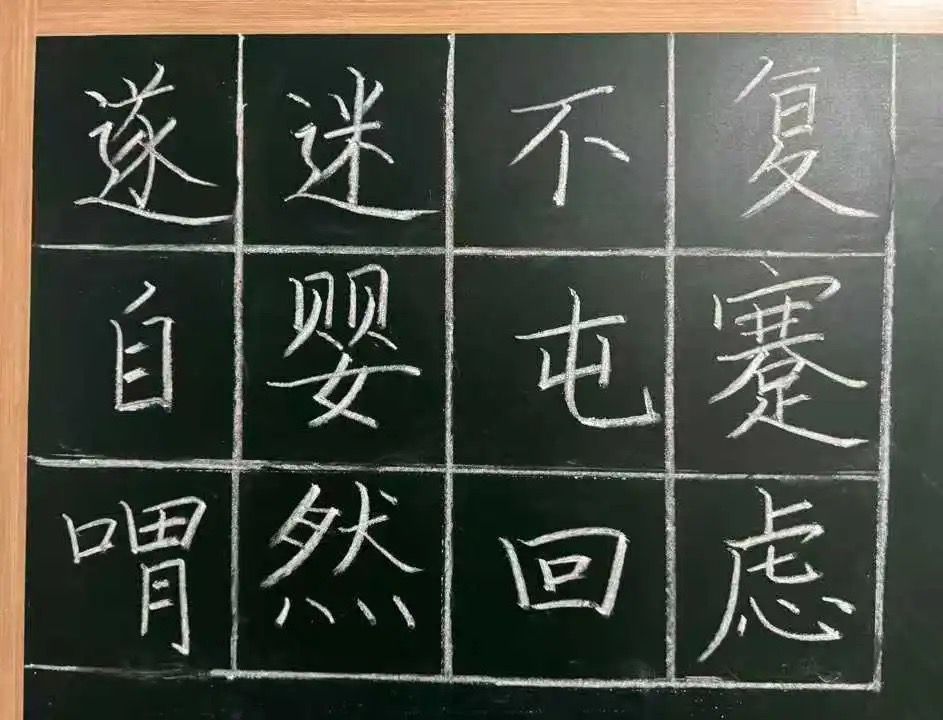 遂迷不复
自婴屯蹇
喟然回虑